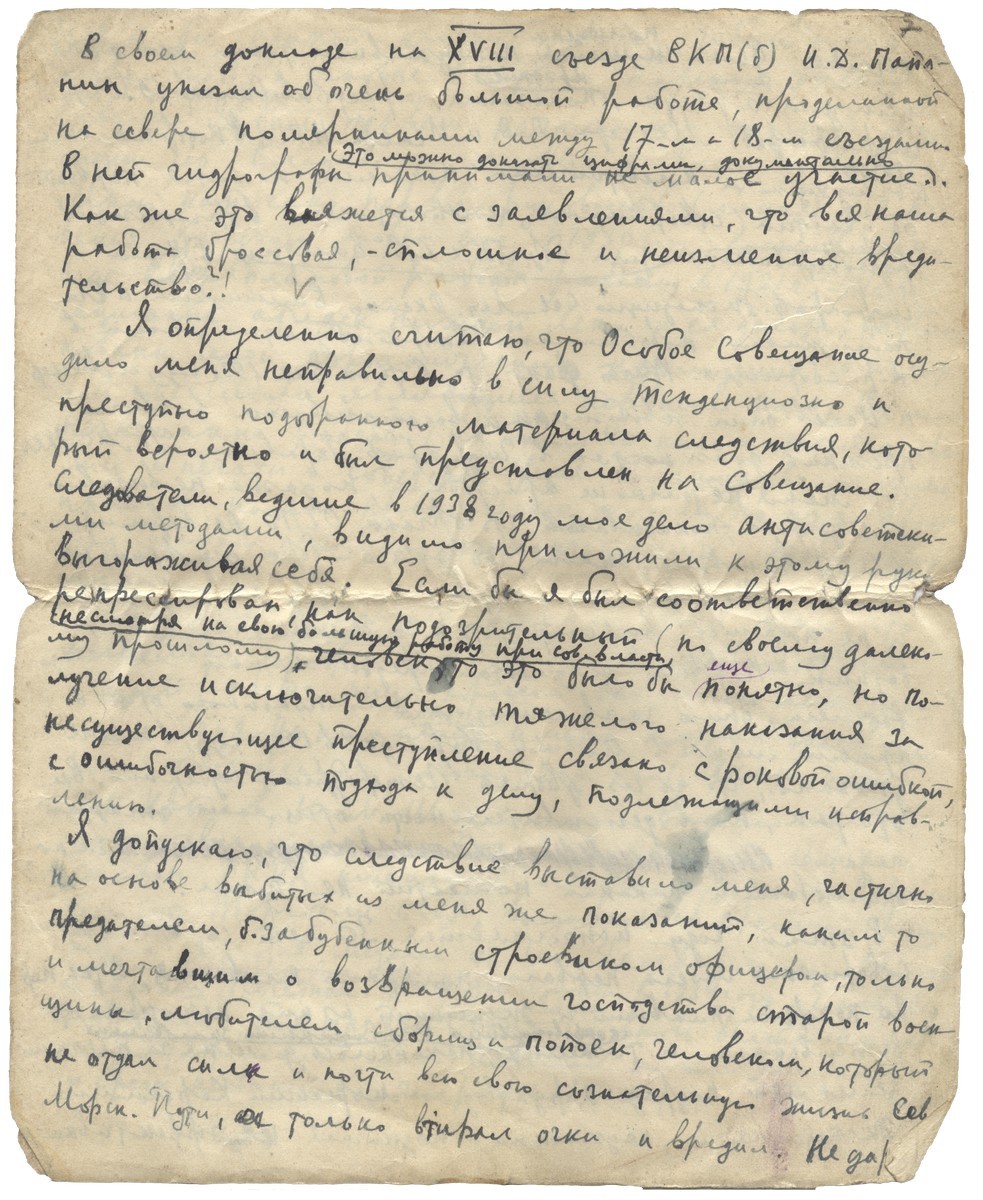 В своем докладе на XVIII съезде ВКП(б) И.Д. Папа-
нин указал об очень большой работе, проделанной
на севере полярниками между 17-м и 18-м съездами.
(Это можно доказать цифрами, документально
В ней гидрографы принимали не малое участие).
Как же это вяжется с заявлениями, что вся наша
работа бросовая, - сплошное и неизменное вреди-
тельство?! V
Я определенно считаю, что Особое Совещание осу-
дило меня неправильно в силу тенденциозно и
преступно подобранного материала следствия, кото
рый вероятно и был представлен на Совещание.
Следователи, ведшие в 1938 году мое дело антисоветски-
ми методами, видимо приложили к этому руку
выгораживая себя. Если бы я был соответственно
репрессирован, как подозрительный (по своему далеко-
(несмотря на свою большую работу при сов. власти)
му прошлому), человек, то это было бы еще понятно, но по-
лучение исключительно тяжелого наказания за
несуществующее преступление связано с роковой ошибкой,
с ошибочностью подхода к делу, подлежащими исправ-
лению.
Я допускаю, что следствие выставило меня, частично
на основе выбитых из меня же показаний, каким то
предателем, б. забубенным строевиком офицером, только
и мечтавшим о возвращении господства старой воен
щины, любителем сборищ и попоек, человеком, который
не отдал силы и почти всю свою сознательную жизнь Сев
Морск. Пути, а только втирал очки и вредил. Не дар